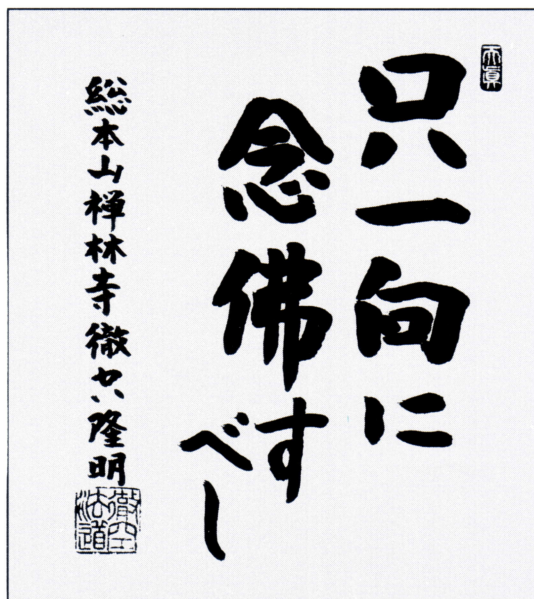 只一向に
念佛すべし
総本山禅林寺徹空隆明
徹空
法道